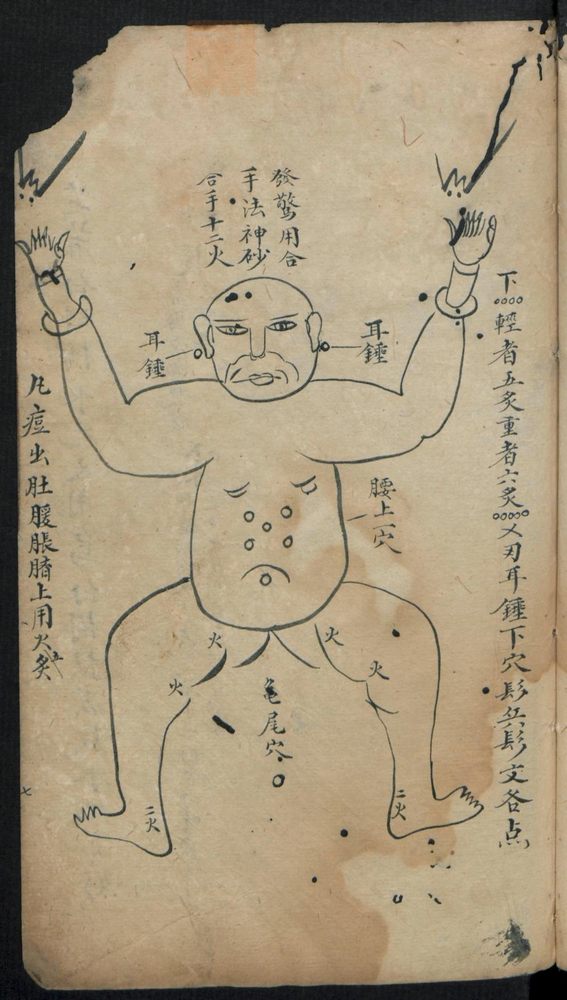 下輕者五炙重者六炙又刃耳錘下穴髟兵髟文各点
發驚用合
手法神砂
合手十二火
耳錘
耳錘
腰上一穴
凡痘出肚腹脹臍上用火炙
火
火
火
火
龟尾穴
二火
二火